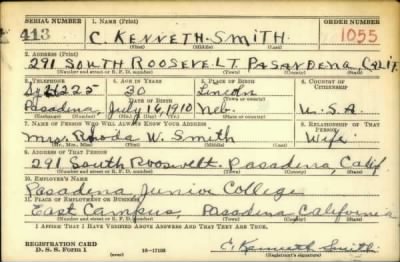 SERIAL NUMBER 1. NAME (Print) ORDER NUMBER
413 C. KENNETH SMITH 1055
(First) (Middle) (Last)
2. ADDRESS (Print)
291 SOUTH ROOSEVELT PASADENA, CALIF.
(Number and street or R. F. D. number) (Town) (County) (State)
3. TELEPHONE 4. AGE IN YEARS 5. PLACE OF BIRTH 6. COUNTRY OF CITIZENSHIP
30 Lincoln
DATE OF BIRTH (Town or county)
Pasadena July 16, 1910 Neb. U.S.A.
(Exchange) (Number) (Mo.) (Day) (Yr.) (State or country)
7. NAME OF PERSON WHO WILL ALWAYS KNOW YOUR ADDRESS 8. RELATIONSHIP OF THAT PERSON
Mrs. Rhoda W. Smith Wife
(Mr., Mrs., Miss) (First) (Middle) (Last)
9. ADDRESS OF THAT PERSON
291 South Roosevelt. Pasadena, Calif
(Number and street or R. F. D. number) (Town) (County) (State)
10. EMPLOYER'S NAME
Pasadena Junior College
11. PLACE OF EMPLOYMENT OR BUSINESS
East Campus, Pasadena California
(Number and street or R. F. D. number) (Town) (County) (State)
I AFFIRM THAT I HAVE VERIFIED ABOVE ANSWERS AND THAT THEY ARE TRUE.
REGISTRATION CARD
D. S. S. Form 1 (over) C. Kenneth Smith
(Registrant's signature)